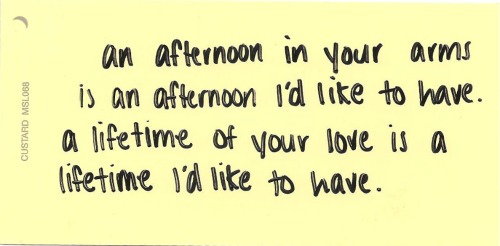 an afternoon in your arms
is an afternoon I'd like to have.
a lifetime of your love is a
lifetime I'd like to have.
CUSTARD MSL068